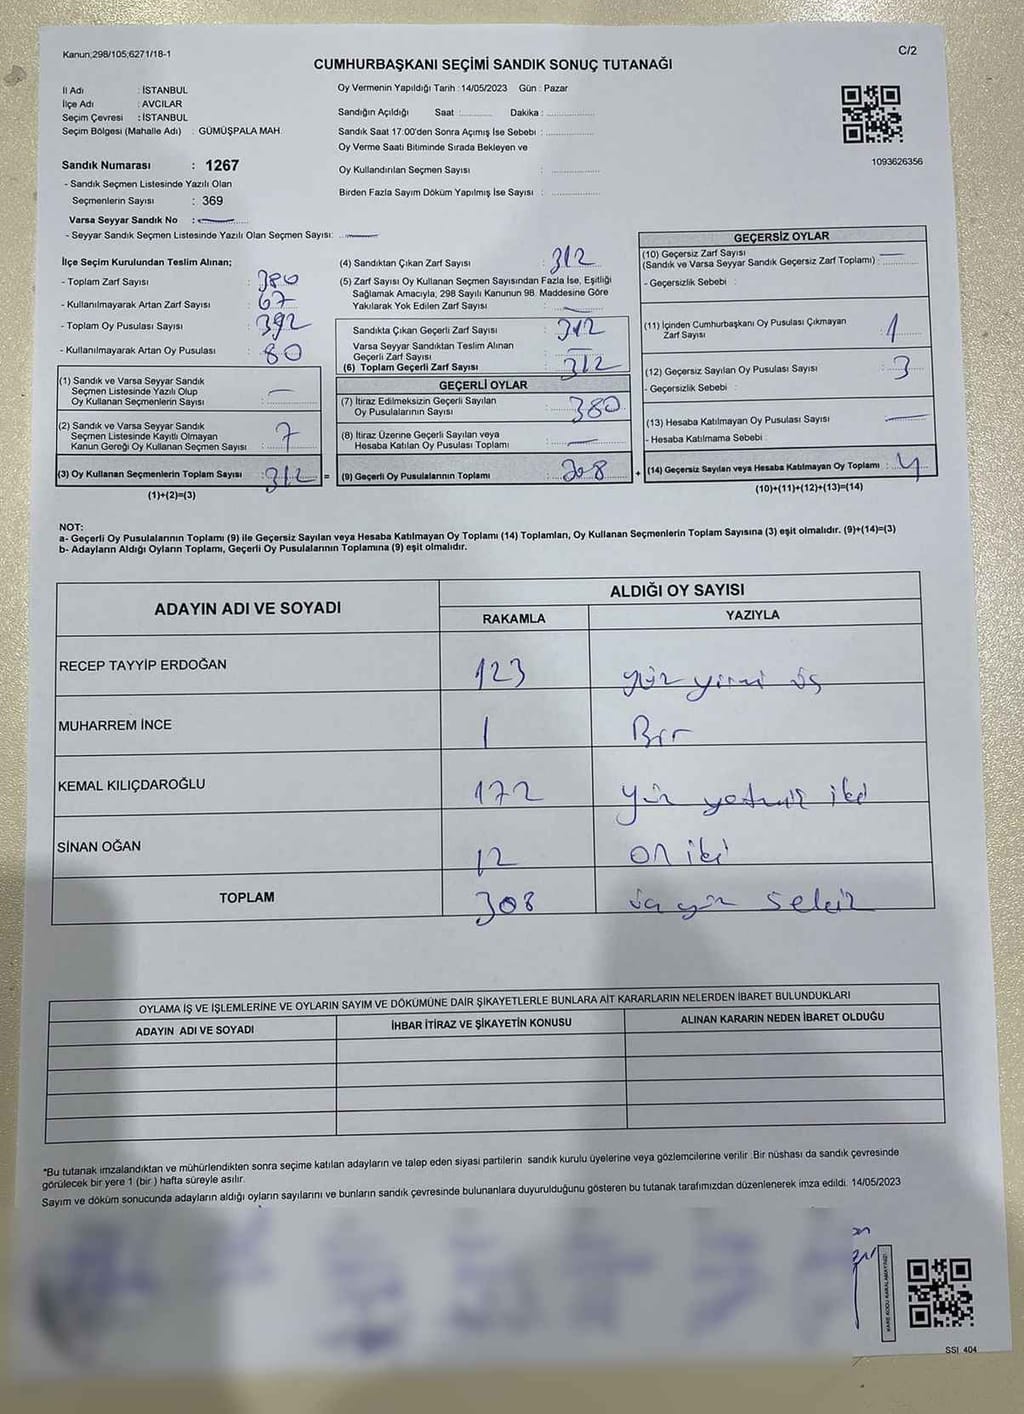 Kanun;298/105;6271/18-1
C/2
CUMHURBAŞKANI SEÇİMİ SANDIK SONUÇ TUTANAĞI
İl Adı : İSTANBUL
İlçe Adı : AVCILAR
Seçim Çevresi : İSTANBUL
Seçim Bölgesi (Mahalle Adı) : GÜMÜŞPALA MAH.
Oy Vermenin Yapıldığı Tarih : 14/05/2023 Gün : Pazar
Sandığın Açıldığı Saat : Dakika :
Sandık Saat 17:00'den Sonra Açımış İse Sebebi :
Oy Verme Saati Bitiminde Sırada Bekleyen ve
Oy Kullandırılan Seçmen Sayısı :
Birden Fazla Sayım Döküm Yapılmış İse Sayısı :
1093626356
Sandık Numarası : 1267
- Sandık Seçmen Listesinde Yazılı Olan
Seçmenlerin Sayısı : 369
Varsa Seyyar Sandık No :
- Seyyar Sandık Seçmen Listesinde Yazılı Olan Seçmen Sayısı:
İlçe Seçim Kurulundan Teslim Alınan;
- Toplam Zarf Sayısı : 380
- Kullanılmayarak Artan Zarf Sayısı : 67
- Toplam Oy Pusulası Sayısı : 392
- Kullanılmayarak Artan Oy Pusulası : 80
(1) Sandık ve Varsa Seyyar Sandık
Seçmen Listesinde Yazılı Olup
Oy Kullanan Seçmenlerin Sayısı :
(2) Sandık ve Varsa Seyyar Sandık
Seçmen Listesinde Kayıtlı Olmayan
Kanun Gereği Oy Kullanan Seçmen Sayısı : 7
(3) Oy Kullanan Seçmenlerin Toplam Sayısı : 312 =
(1)+(2)=(3)
(4) Sandıktan Çıkan Zarf Sayısı : 312
(5) Zarf Sayısı Oy Kullanan Seçmen Sayısından Fazla İse, Eşitliği
Sağlamak Amacıyla, 298 Sayılı Kanunun 98. Maddesine Göre
Yakılarak Yok Edilen Zarf Sayısı :
Sandıkta Çıkan Geçerli Zarf Sayısı : 312
Varsa Seyyar Sandıktan Teslim Alınan
Geçerli Zarf Sayısı :
(6) Toplam Geçerli Zarf Sayısı : 312
GEÇERLİ OYLAR
(7) İtiraz Edilmeksizin Geçerli Sayılan
Oy Pusulalarının Sayısı : 380
(8) İtiraz Üzerine Geçerli Sayılan veya
Hesaba Katılan Oy Pusulası Toplamı :
(9) Geçerli Oy Pusulalarının Toplamı : 308 +
GEÇERSİZ OYLAR
(10) Geçersiz Zarf Sayısı
(Sandık ve Varsa Seyyar Sandık Geçersiz Zarf Toplamı) :
- Geçersizlik Sebebi :
(11) İçinden Cumhurbaşkanı Oy Pusulası Çıkmayan
Zarf Sayısı : 1
(12) Geçersiz Sayılan Oy Pusulası Sayısı : 3
- Geçersizlik Sebebi :
(13) Hesaba Katılmayan Oy Pusulası Sayısı :
- Hesaba Katılmama Sebebi :
(14) Geçersiz Sayılan veya Hesaba Katılmayan Oy Toplamı : 4
(10)+(11)+(12)+(13)=(14)
NOT:
a- Geçerli Oy Pusulalarının Toplamı (9) ile Geçersiz Sayılan veya Hesaba Katılmayan Oy Toplamı (14) Toplamları, Oy Kullanan Seçmenlerin Toplam Sayısına (3) eşit olmalıdır. (9)+(14)=(3)
b- Adayların Aldığı Oyların Toplamı, Geçerli Oy Pusulalarının Toplamına (9) eşit olmalıdır.
ADAYIN ADI VE SOYADI
ALDIĞI OY SAYISI
RAKAMLA
YAZIYLA
RECEP TAYYİP ERDOĞAN 123 yüz yirmi üç
MUHARREM İNCE 1 Bir
KEMAL KILIÇDAROĞLU 172 yüz yetmiş iki
SİNAN OĞAN 12 on iki
TOPLAM 308 üç yüz sekiz
OYLAMA İŞ VE İŞLEMLERİNE VE OYLARIN SAYIM VE DÖKÜMÜNE DAİR ŞİKAYETLERLE BUNLARA AİT KARARLARIN NELERDEN İBARET BULUNDUKLARI
ADAYIN ADI VE SOYADI
İHBAR İTİRAZ VE ŞİKAYETİN KONUSU
ALINAN KARARIN NEDEN İBARET OLDUĞU
*Bu tutanak imzalandıktan ve mühürlendikten sonra seçime katılan adayların ve talep eden siyasi partilerin sandık kurulu üyelerine veya gözlemcilerine verilir. Bir nüshası da sandık çevresinde
görülecek bir yere 1 (bir ) hafta süreyle asılır.
Sayım ve döküm sonucunda adayların aldığı oyların sayılarını ve bunların sandık çevresinde bulunanlara duyurulduğunu gösteren bu tutanak tarafımızdan düzenlenerek imza edildi. 14/05/2023
KARE KODU KARALAMAYINIZ!
SSI: 404